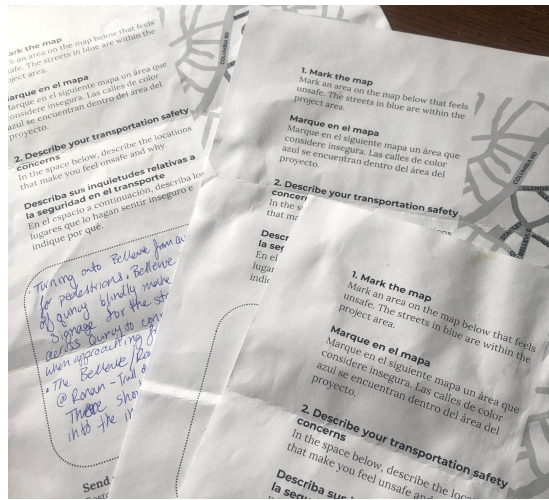 ark the map
k an area on the map below that feels
safe. The streets in blue are within the
project area.
arque en el mapa
arque en el siguiente mapa un área que
considere insegura. Las calles de color
azul se encuentran dentro del área del
proyecto.
2. Describe your transportation safety
concerns
In the space below, describe the locations
that make you feel unsafe and why.
Describa sus inquietudes relativas a
la seguridad en el transporte
En el espacio a continuación, describa los
lugares que lo hagan sentir inseguro e
indique por qué.
Turning onto Bellevue from
for pedestrians. Bellevue
of quincy blindly make
Signage for the
across Quincy to
when approaching
The Bellevue
@ Ronan -
There
into the
Send
COLUMBIA RD
1. Mark the map
Mark an area on the map below that feels
unsafe. The streets in blue are within the
project area.
Marque en el mapa
Marque en el siguiente mapa un área que
considere insegura. Las calles de color
azul se encuentran dentro del área del
proyecto.
2. Describe your transportation safety
concerns
In the s
that ma
Descr
la seg
En el
lugar
indic
COLUMBIA RD
1. Mark the map
Mark an area on the map below that feels
unsafe. The streets in blue are within the
project area.
Marque en el mapa
Marque en el siguiente mapa un área que
considere insegura. Las calles de color
azul se encuentran dentro del área del
proyecto.
2. Describe your transportation safety
concerns
In the space below, describe the loca
that make you feel unsafe an
Describa sus
la segu